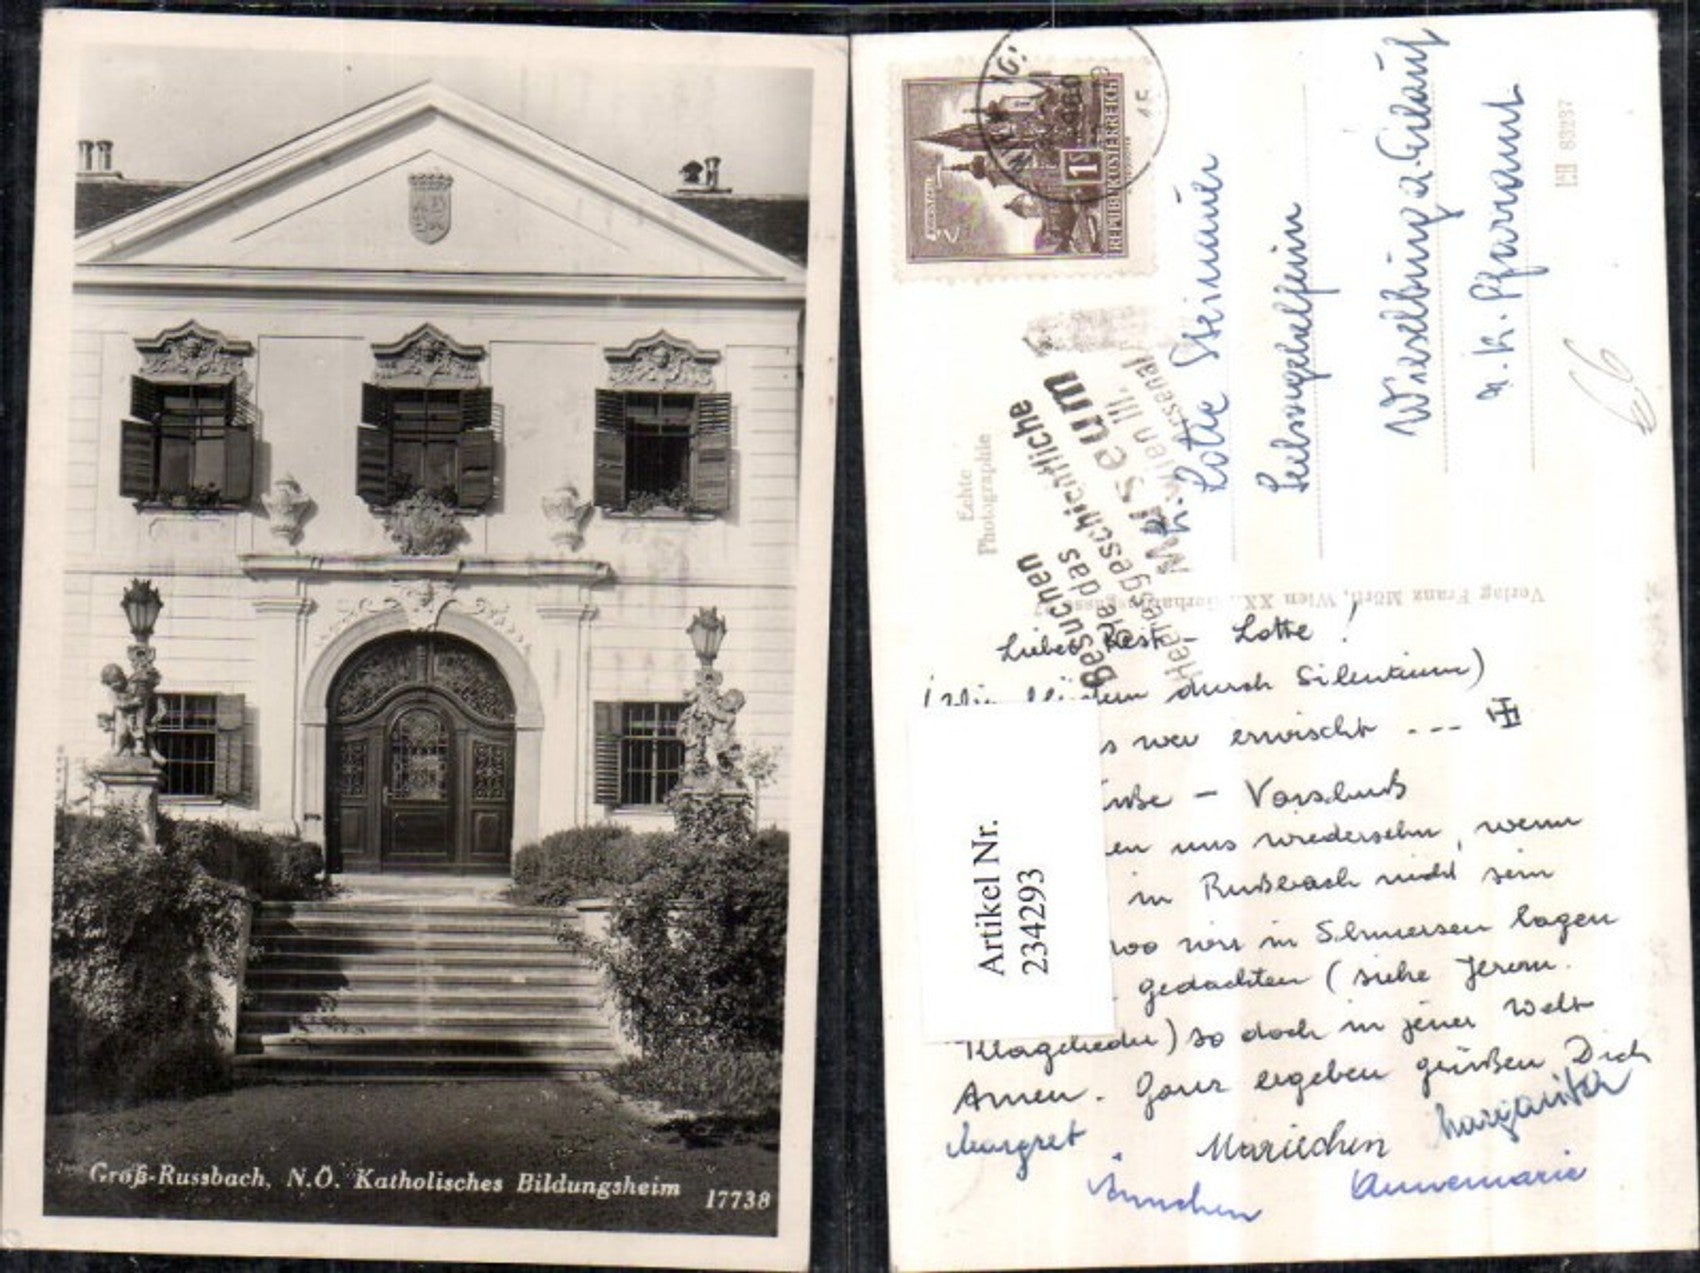 Groß-Russbach, N.Ö. Katholisches Bildungsheim 17738
REPUBLIK ÖSTERREICH
1S
Besuchen
Sie das
Heeresgeschichtliche
Museum
Wien III. Arsenal
Echte
Photographie
Verlag Franz Mörtl, Wien XX., Gerhardusgasse
63237
66
Lotte Steinauer
Seelsorgehelferin
Wieselburg a. Erlauf
r. k. Pfarramt
Liebes Lotte!
durch Silentium)
s wer erwischt ---
- Vorschuß
en uns wiedersehn, wenn
in Rußbach nicht sein
wo wir in Schmerzen lagen
gedachten (siehe Jerem.
Klagelieder) so doch in jener Welt
Amen. Ganz ergeben grüßen Dich
Margret Mariechen Margarita
Ännchen Annemarie
Artikel Nr.
234293